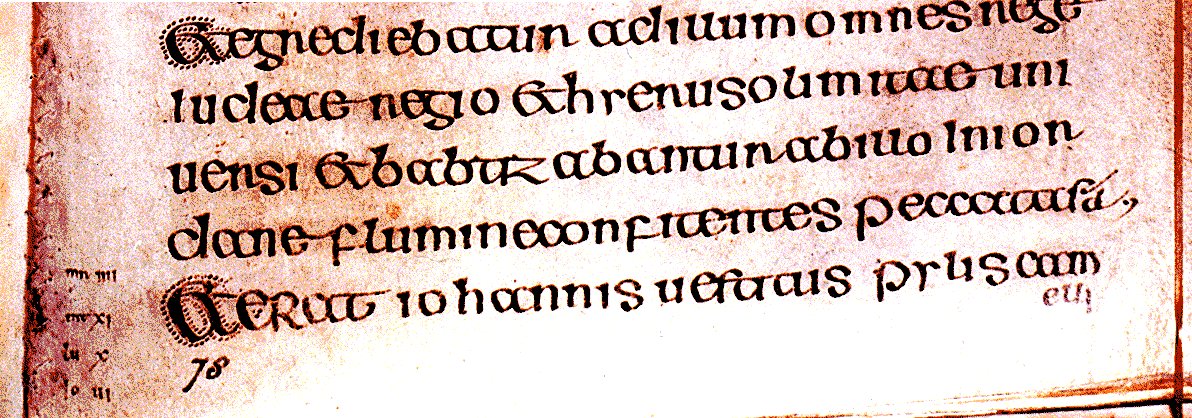 Etegrediebatur adillum omnes rege
iudeae regio &hyerusolimitae uni
uersi &babtizabantur abillo inior
dane flumine confitentes peccata sua
mr iiii
Et erat iohannis uestitus pylis cam
eli
mt xi
lu x
io iii
78